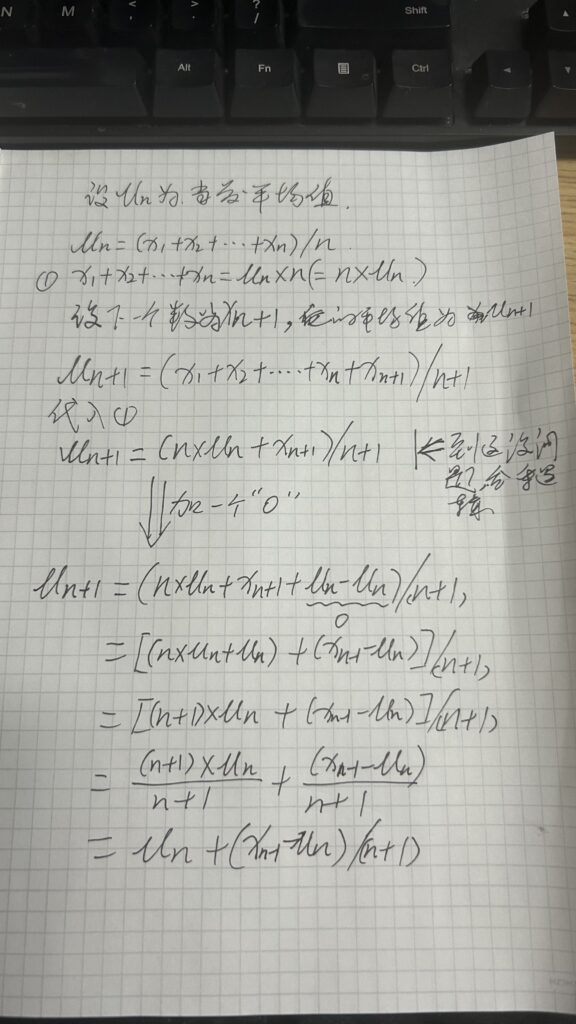 N M < , > . ? / Shift
Alt Fn Ctrl
设μn为当前平均值.
μn=(x1+x2+⋯+xn)/n
① x1+x2+⋯+xn=μn×n(=n×μn)
设下一个数为xn+1, 平均值为μn+1
μn+1=(x1+x2+⋯⋯+xn+xn+1)/n+1
代入①
μn+1=(n×μn+xn+1)/n+1 |←到这没问
题,
加一个"0"
μn+1=(n×μn+xn+1+μn-μn)/(n+1)
0
=[(n×μn+μn)+(xn+1-μn)]/(n+1)
=[(n+1)×μn+(xn+1-μn)]/(n+1)
=(n+1)×μn/n+1+(xn+1-μn)/n+1
=μn+(xn+1-μn)/(n+1)